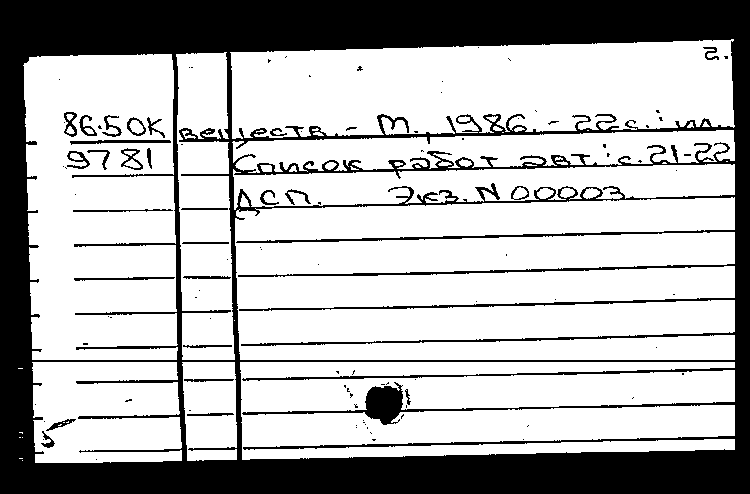 2.
86-5 ОК веществ. - М., 1986. - 22 с. : ил.
9781 Список работ авт.: с. 21-22
ДСП. Экз. N 00003.